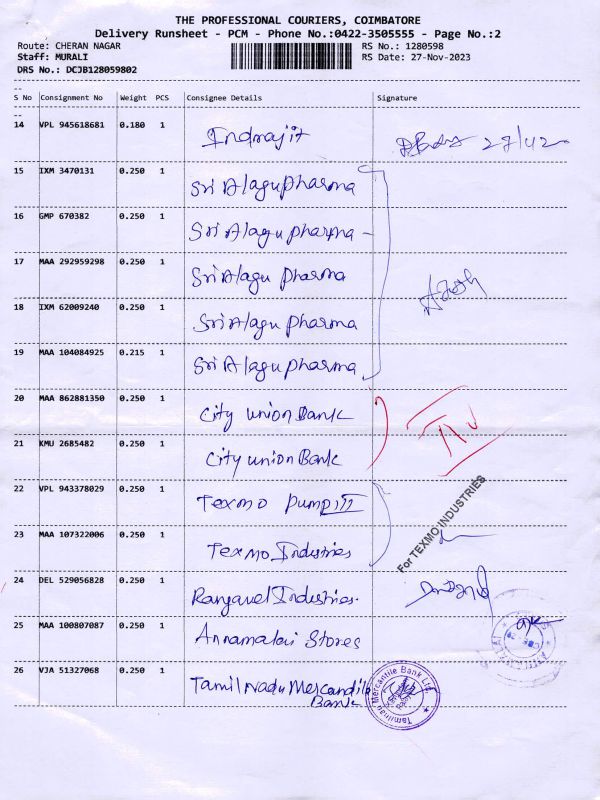 THE PROFESSIONAL COURIERS, COIMBATORE
Delivery Runsheet - PCM - Phone No.:0422-3505555 - Page No.:2
Route: CHERAN NAGAR RS No.: 1280598
Staff: MURALI RS Date: 27-Nov-2023
DRS No.: DCJB128059802
S No Consignment No Weight PCS Consignee Details Signature
14 VPL 945618681 0.180 1 Indrajit
15 IXM 3470131 0.250 1 Sri Alagu Pharma
16 GMP 670382 0.250 1 Sri Alagu Pharma -
17 MAA 292959298 0.250 1 Sri Alagu Pharma
18 IXM 62009240 0.250 1 Sri Alagu Pharma
19 MAA 104084925 0.215 1 Sri Alagu Pharma
20 MAA 862881350 0.250 1 City Union Bank
21 KMU 2685482 0.250 1 City Union Bank
22 VPL 943378029 0.250 1 Texmo Pump III
For TEXMO INDUSTRIES
23 MAA 107322006 0.250 1 Texmo Industries
24 DEL 529056828 0.250 1 Rangavel Industries.
25 MAA 100807087 0.250 1 Annamalai Stores
26 VJA 51327068 0.250 1 Tamil Nadu Mercandile
Bank
Tamilnad Mercantile Bank Ltd.